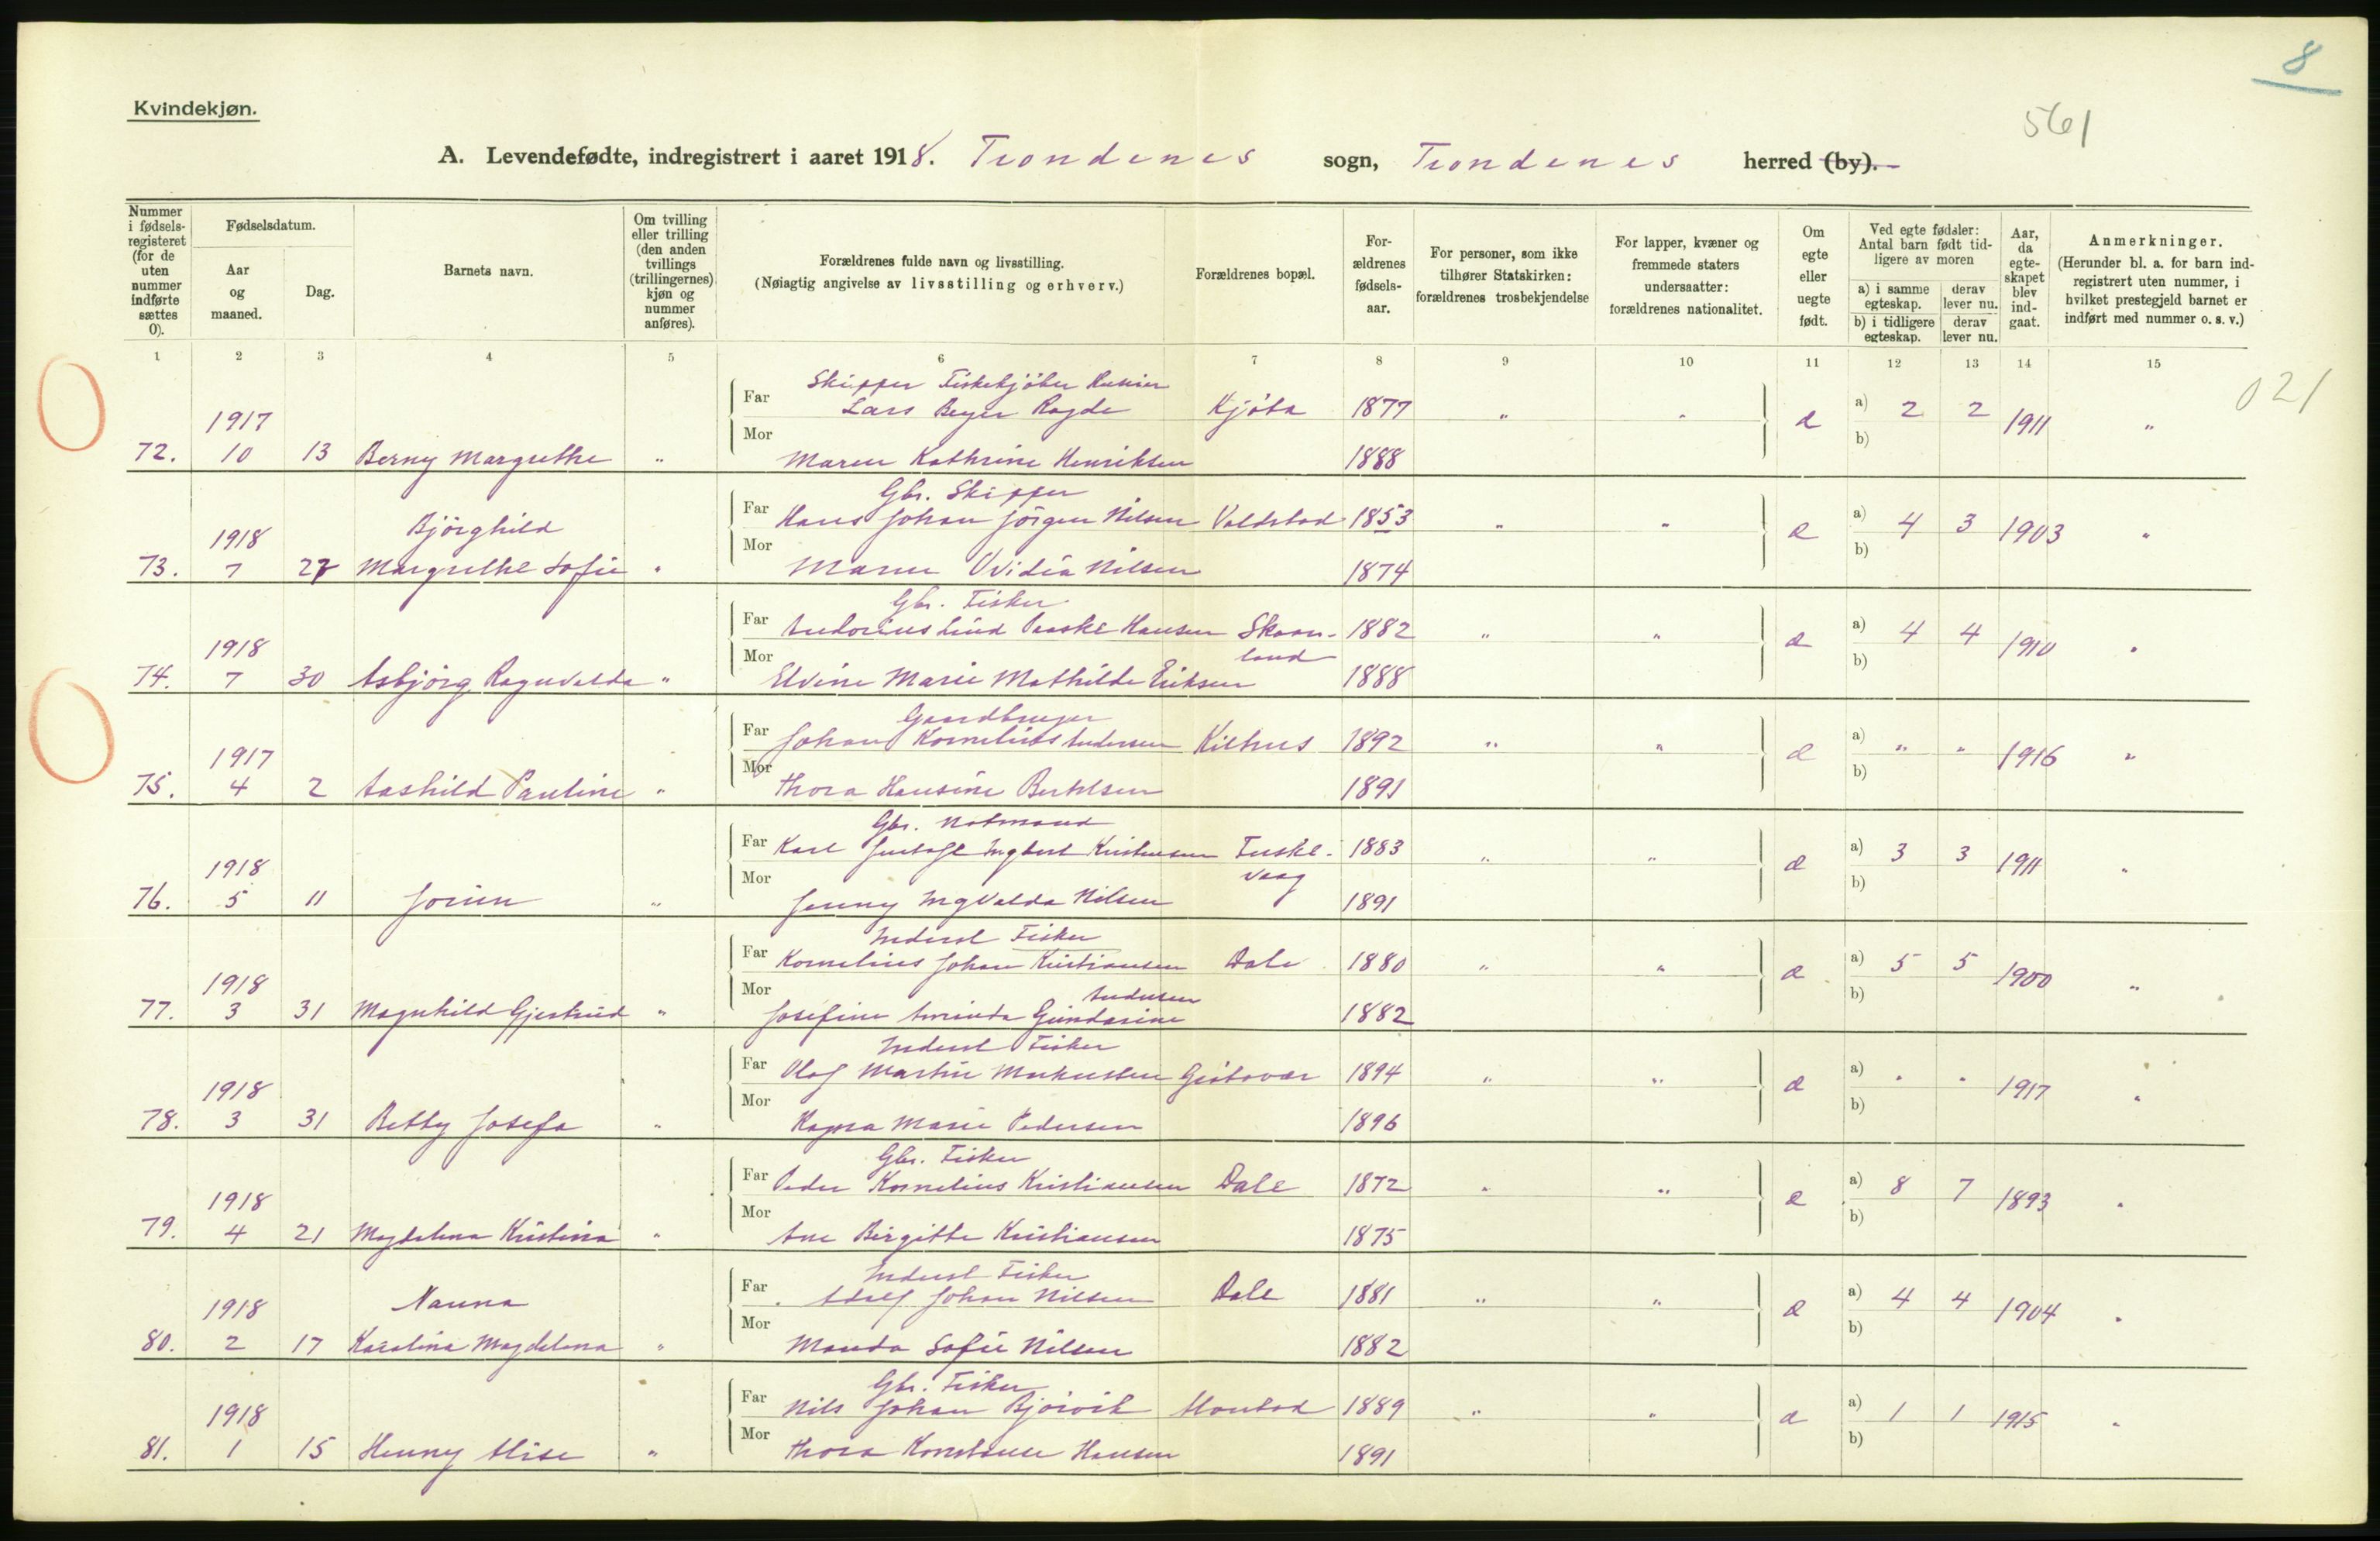 8
Kvindekjøn.
561
A. Levendefødte, indregistrert i aaret 1918. Trondenes sogn, Trondenes herred (by).
Nummer i fødsels-registeret (for de uten nummer indførte sættes 0).
Fødselsdatum.
Aar og maaned.
Dag.
Barnets navn.
Om tvilling eller trilling (den anden tvillings (trillingernes) kjøn og nummer anføres).
Forældrenes fulde navn og livsstilling.
(Nøiagtig angivelse av livsstilling og erhverv.)
Forældrenes bopæl.
For-ældrenes fødsels-aar.
For personer, som ikke tilhører Statskirken: forældrenes trosbekjendelse
For lapper, kvæner og fremmede staters undersaatter: forældrenes nationalitet.
Om egte eller uegte født.
Ved egte fødsler: Antal barn født tid-ligere av moren
a) i samme egteskap. derav lever nu.
b) i tidligere egteskap. derav lever nu.
Aar, da egte-skapet blev ind-gaat.
Anmerkninger.
(Herunder bl. a. for barn ind-registrert uten nummer, i hvilket prestegjeld barnet er indført med nummer o. s. v.)
1 2 3 4 5 6 7 8 9 10 11 12 13 14 15
021
Skipper Fiskekjøber
1917 Far Lars Beyer Ragde Kjøta 1877 " " e a) 2 2 1911 "
72. 10 13 Berny Margrethe " Mor Maren Kathrine Henriksen 1888 b)
Gbr. Skipper
1918 Bjørghild Far Hans Johan Jörgen Nilsen Voldstad 1853 " " e a) 4 3 1903 "
73. 7 27 Margrethe Sofie " Mor Maren Ovidia Nilsen 1874 b)
Gbr. Fisker
1918 Far Andorius Lind Paaske Hansen Skaan- 1882 " " e a) 4 4 1910 "
land
74. 7 30 Asbjörg Ragnvalda " Mor Elvine Marie Mathilde Eriksen 1888 b)
Gaardbruger
1917 Far Johan Kornelius Andersen Kilhus 1892 " " e a) " " 1916 "
75. 4 2 Aashild Pauline " Mor Thora Hansine Berthlsen 1891 b)
Gbr. Notmand
1918 Far Karl Gustaf Ingbert Kristensen Tuske- 1883 " " e a) 3 3 1911 "
vaag
76. 5 11 Jorun " Mor Jenny Ingvalda Nilsen 1891 b)
Inderst Fisker
1918 Far Kornelius Johan Kristiansen Dale 1880 " " e a) 5 5 1900 "
Andersen
77. 3 31 Magnhild Gjertrud " Mor Josefine Aminda Gundarine 1882 b)
Inderst Fisker
1918 Far Olaf Martin Markussen 1894 " " e a) " " 1917 "
78. 3 31 Betty Josefa " Mor Ragna Marie Pedersen 1896 b)
Gbr. Fisker
1918 Far Peder Kornelius Kristiansen Dale 1872 " " e a) 8 7 1893 "
79. 4 21 Magdalena Kristina " Mor Ane Birgitte Kristiansen 1875 b)
Inderst Fisker
1918 Nanna Far Adolf Johan Nilsen Dale 1881 " " e a) 4 4 1904 "
80. 2 17 Karolina Magdalena " Mor Manda Sofie Nilsen 1882 b)
Gbr. Fisker
1918 Far Nils Johan Bjørvik 1889 " " e a) 1 1 1915 "
81. 1 15 Henny Alise " Mor Thora Konstanse Hansen 1891 b)